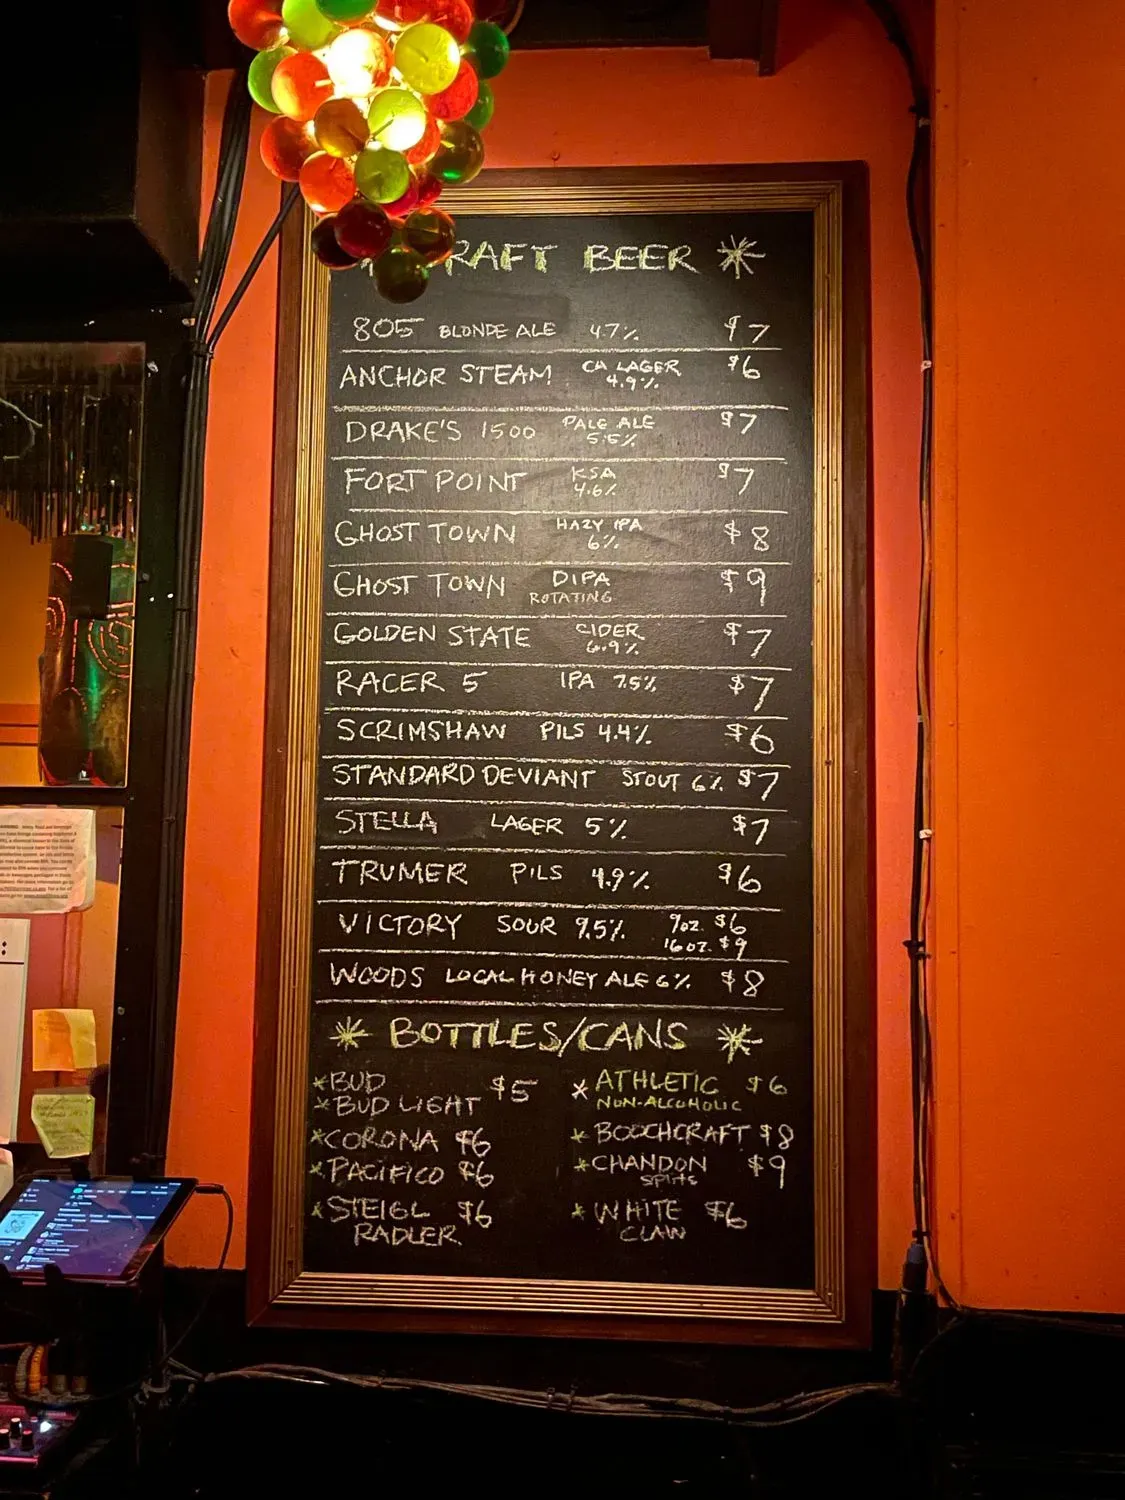 RAFT BEER
805 BLONDE ALE 4.7% $7
ANCHOR STEAM CA LAGER $6
4.9%
DRAKE'S 1500 PALE ALE $7
5.5%
FORT POINT KSA $7
4.6%
GHOST TOWN HAZY IPA $8
6%
GHOST TOWN DIPA $9
ROTATING
GOLDEN STATE CIDER $7
6.9%
RACER 5 IPA 7.5% $7
SCRIMSHAW PILS 4.4% $6
STANDARD DEVIANT STOUT 6% $7
STELLA LAGER 5% $7
TRUMER PILS 4.9% $6
VICTORY SOUR 9.5% 9oz. $6
16oz. $9
WOODS LOCAL HONEY ALE 6% $8
BOTTLES/CANS
*BUD $5
*BUD LIGHT
*CORONA $6
*PACIFICO $6
*STEIGL $6
RADLER
*ATHLETIC $6
NON-ALCOHOLIC
*BOOCHCRAFT $8
*CHANDON $9
SPLITS
*WHITE $6
CLAW